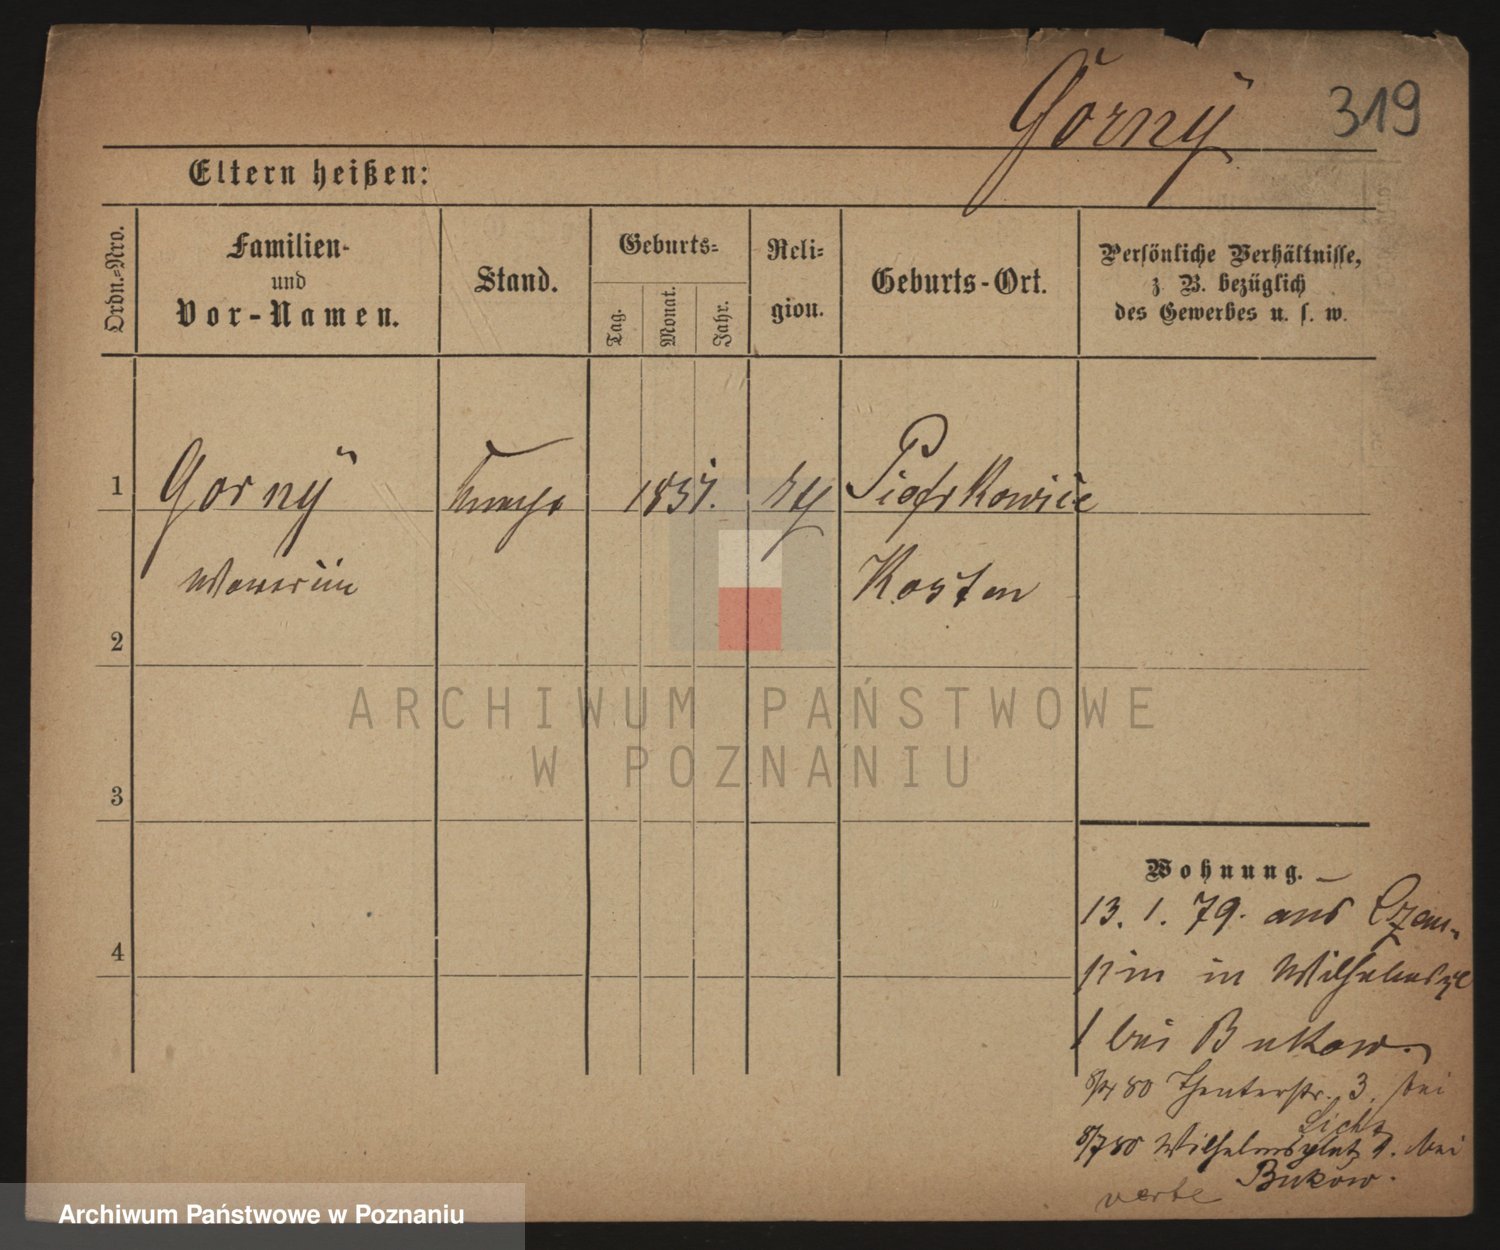 Gorny 319
Eltern heißen:
Ordn.-Nro.
Familien-
und
Vor-Namen.
Stand.
Geburts-
Tag.
Monat.
Jahr.
Reli-
gion.
Geburts-Ort.
Persönliche Verhältnisse,
z. B. bezüglich
des Gewerbes u. s. w.
1 Gorny 1851. Piotrkowice
Kosten
2
3
4
Wohnung.
13. 1. 79. aus Czem-
pin in Wilhelmspl
1 bei Bukow.
80 Theaterstr. 3. bei
8/7 80 Wilhelmsplatz 1. bei
Bukow.
verte
ARCHIWUM PAŃSTWOWE
W POZNANIU
Archiwum Państwowe w Poznaniu